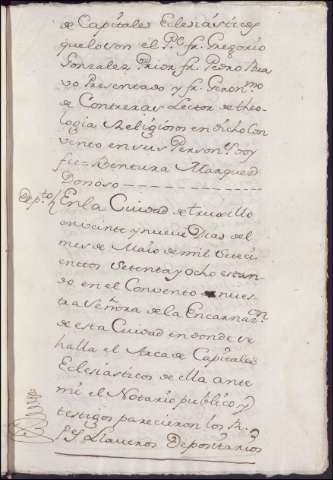 de Capitales Eclesiasticos
que lo son el Pe. fr. Gregorio
Gonzalez Prior fr. Pedro Bra
vo Presentado y fr. Geronmo
de Contreras Lector de theo
logia Religiosos en dicho Con
vento en sus Personas doy
fee= Bentura Marques
Donoso
Dpto En la Ciudad de truxillo
en veinte y nueve Dias del
mes de Maio de mil Seteci
entos Setenta y ocho estan
do en el Convento nues
tra Señora de la Encarnacn.
de esta Ciudad en donde se
halla el Arca de Capitales
Eclesiasticos de ella ante
mi el Notario publico y
testigos parecieron los
Llaveros Depositarios